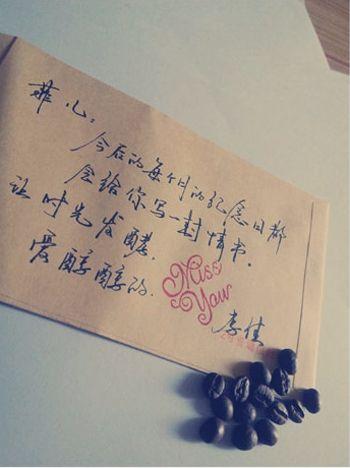 菲儿：
今后的每个月的纪念日都
会给你写一封情书。
让时光发酵，
爱醇醇的.
Miss
You
李佳